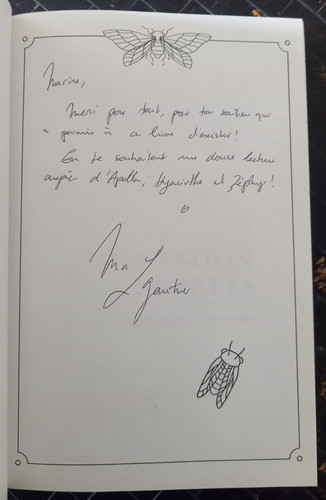 Marine,
Merci pour tout, pour ton soutien qui
a permis à ce livre d'exister !
En te souhaitant une douce lecture
auprès d'Apollon, Hyacinthe et Zéphyr !
Gautier
ATION
ALES